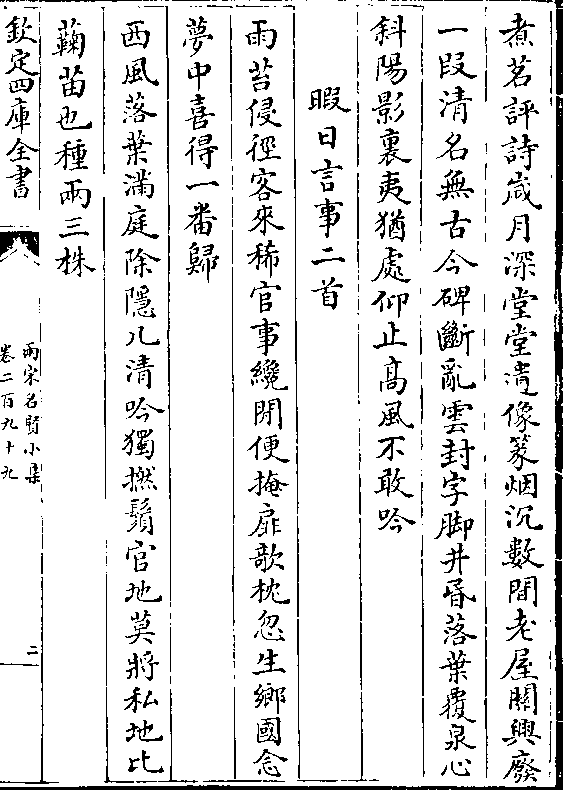 煮茗評詩歳月深堂堂遺像篆烟沉數間老屋關興廢
一段清名無古今碑斷亂雲封字脚井昏落葉覆泉心
斜陽影裏夷猶處仰止髙風不敢吟
暇日言事二首
雨苔侵徑客來稀官事纔閒便掩扉欹枕忽生鄉國念
夢中喜得一番歸
西風落葉滿庭除隱几清吟獨撚鬚官地莫將私地比
蘜苗也種兩三株
欽定四庫全書
兩宋名賢小集
卷二百九十九
二